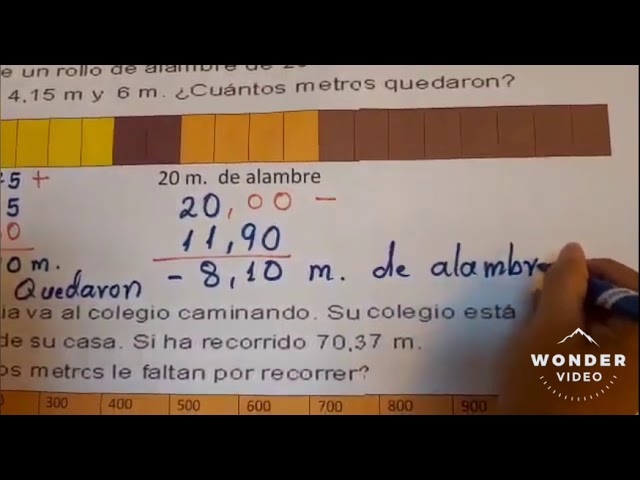 e un rollo de alambre de 20
4,15 m y 6 m. ¿Cuántos metros quedaron?
5 +
5
0
0 m.
20 m. de alambre
20,00 -
11,90
- 8,10 m. de alambr
Quedaron
ia va al colegio caminando. Su colegio está
de su casa. Si ha recorrido 70,37 m.
os metros le faltan por recorrer?
300 400 500 600 700 800 900
WONDER
VIDEO